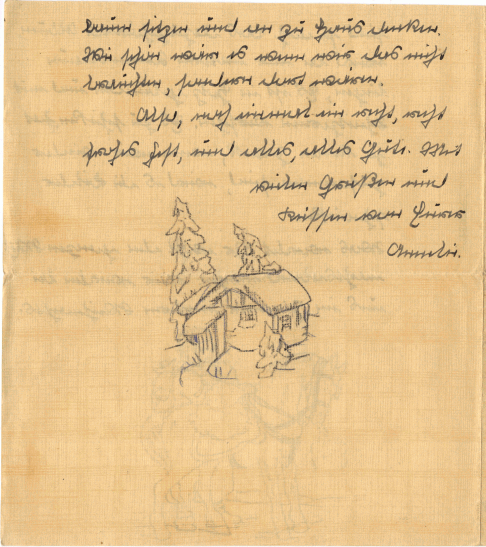 baum sitzen und an zu Haus denken.
Wie schön wär es wenn wir das nicht
brauchten, sondern dort wären.
Also, noch einmal ein recht, recht
frohes Fest, und alles, alles Gute. Mit
vielen Grüßen und
Küssen von Eurer
Annelie.